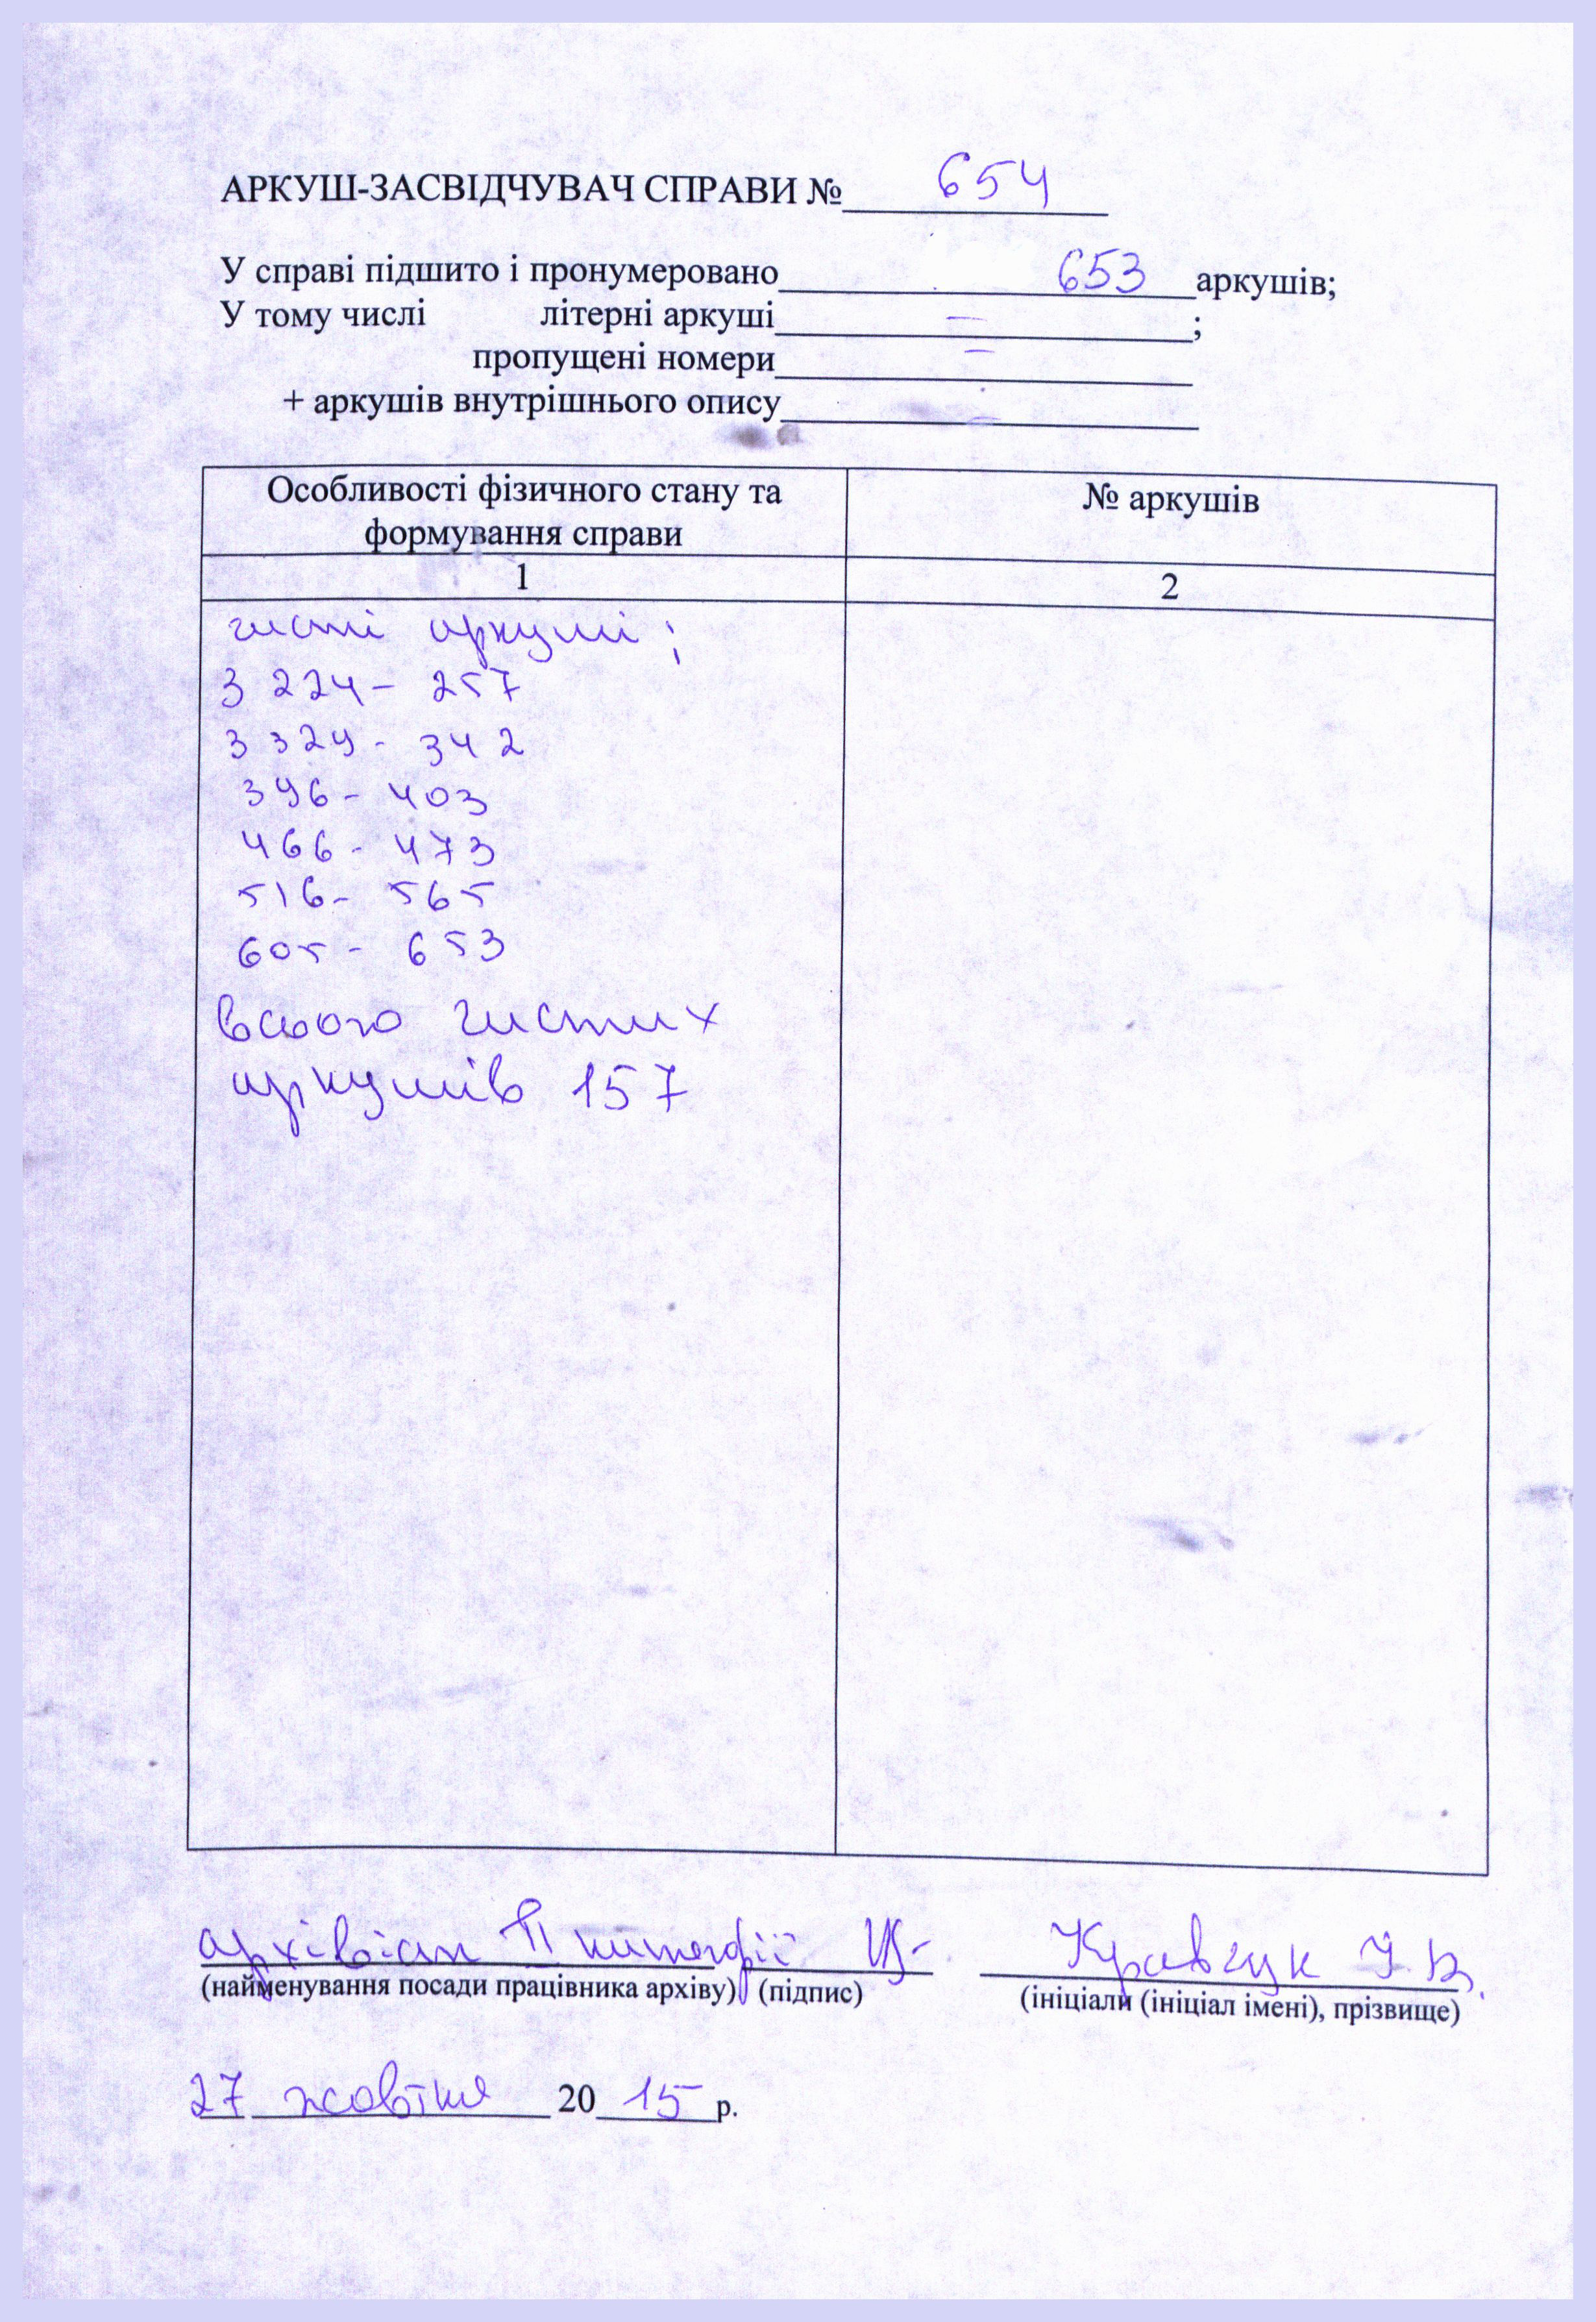 АРКУШ-ЗАСВІДЧУВАЧ СПРАВИ № 654
У справі підшито і пронумеровано 653 аркушів;
У тому числі літерні аркуші – ;
пропущені номери –
+ аркушів внутрішнього опису –
Особливості фізичного стану та формування справи
№ аркушів
1 2
чисті аркуші;
З 224 – 257
З 329 - 342
396 - 403
466 - 473
516 - 565
605 - 653
всього чистих
аркушів 157
архівіст II категорії Кравчук І. В.
(найменування посади працівника архіву) (підпис) (ініціали (ініціал імені), прізвище)
27 жовтня 2015 р.